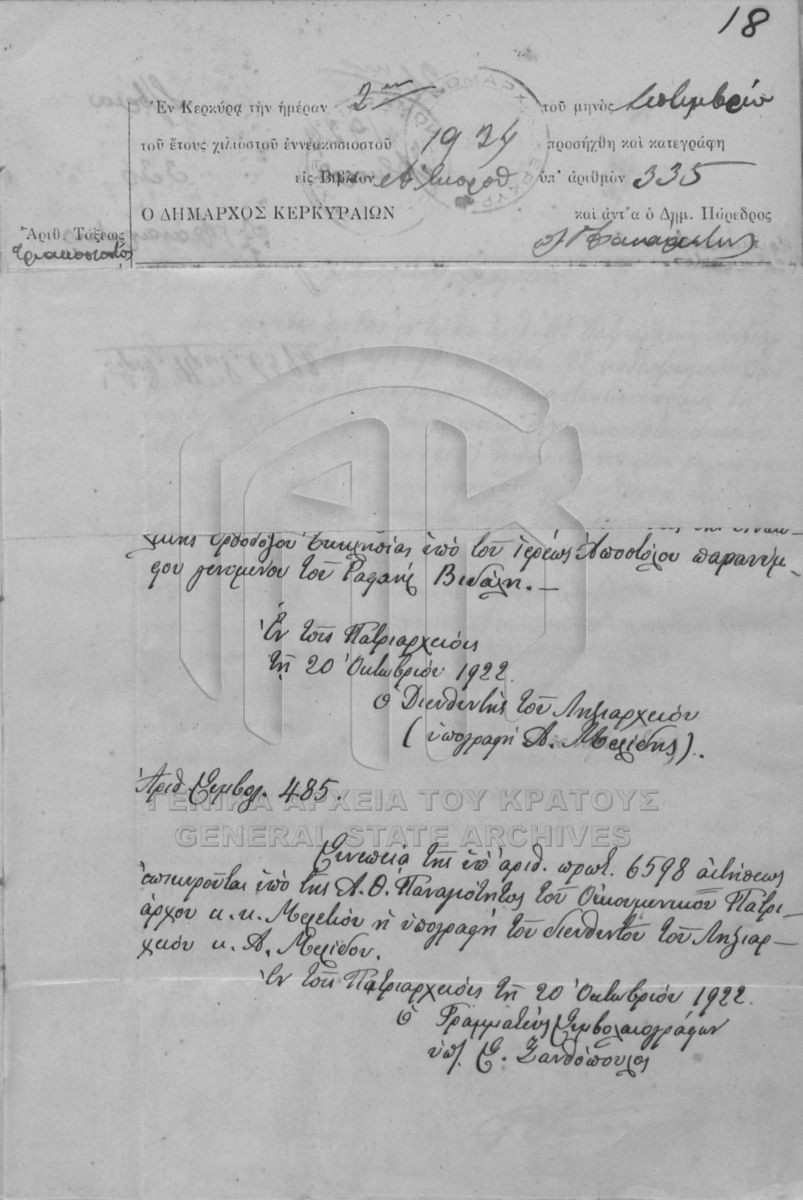 18
Ἐν Κερκύρᾳ τὴν ἡμέραν 2αν τοῦ μηνὸς Σεπτεμβρίου
τοῦ ἔτους χιλιοστοῦ ἐννεακοσιοστοῦ 1924 προσήχθη καὶ κατεγράφη
εἰς Βιβλίον ὑπ' ἀριθμὸν 335
Ο ΔΗΜΑΡΧΟΣ ΚΕΡΚΥΡΑΙΩΝ καὶ ἀντ'α ὁ Δημ. Πάρεδρος
Ἀριθ. Τάξεως
τριακοστός
Ὀρθοδόξου Ἐκκλησίας ὑπὸ τοῦ Ἱερέως Ἀποστόλου παρανύμ-
φου γενομένου τοῦ Ραφαήλ Βιδάλη. —
Ἐν τοῖς Πατριαρχείοις
τῇ 20 Ὀκτωβρίου 1922
Ὁ Διευθυντὴς τοῦ Ληξιαρχείου
(ὑπογραφὴ Α. Μελίδης).
Ἀριθ. Συμβολ. 485.
ΓΕΝΙΚΑ ΑΡΧΕΙΑ ΤΟΥ ΚΡΑΤΟΥΣ
GENERAL STATE ARCHIVES
Συνεπείᾳ τῆς ὑπ' ἀριθ. πρωτ. 6598 αἰτήσεως
ἐπικυροῦται ὑπὸ τῆς Α. Θ. Παναγιότητος τοῦ Οἰκουμενικοῦ Πατρι-
άρχου κ. κ. Μελετίου ἡ ὑπογραφὴ τοῦ διευθυντοῦ τοῦ Ληξιαρ-
χείου κ. Α. Μελίδου.
Ἐν τοῖς Πατριαρχείοις τῇ 20 Ὀκτωβρίου 1922
Ὁ Γραμματεὺς Συμβολαιογράφων
ὑπ. Ξανθόπουλος